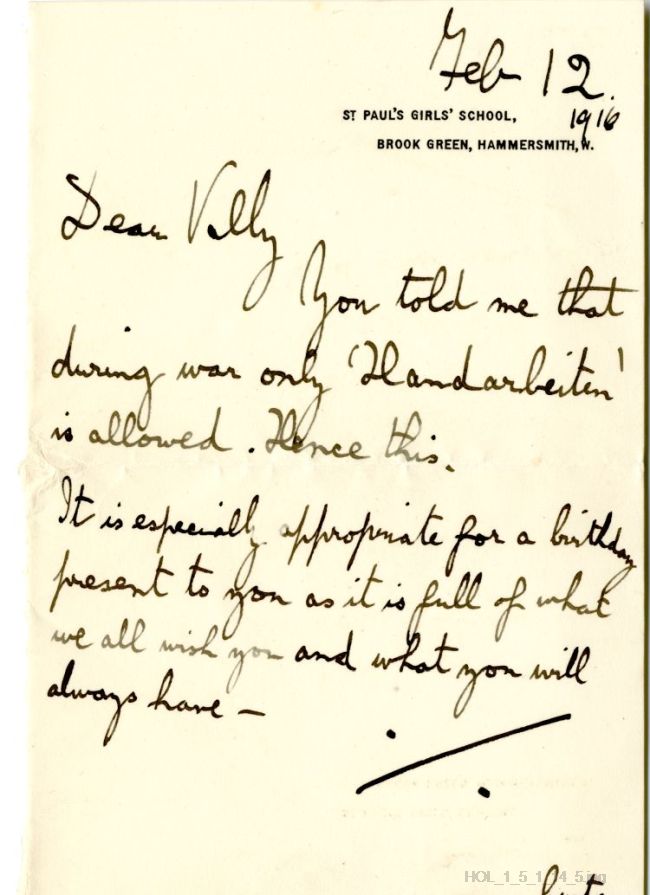 Feb 12.
1916
ST PAUL'S GIRLS' SCHOOL,
BROOK GREEN, HAMMERSMITH, W.
Dear Vally
You told me that
during war only 'Handarbeiten'
is allowed. Hence this.
It is especially appropriate for a birthday
present to you as it is full of what
we all wish you and what you will
always have —
HOL_1_5_1_14_5.jpg